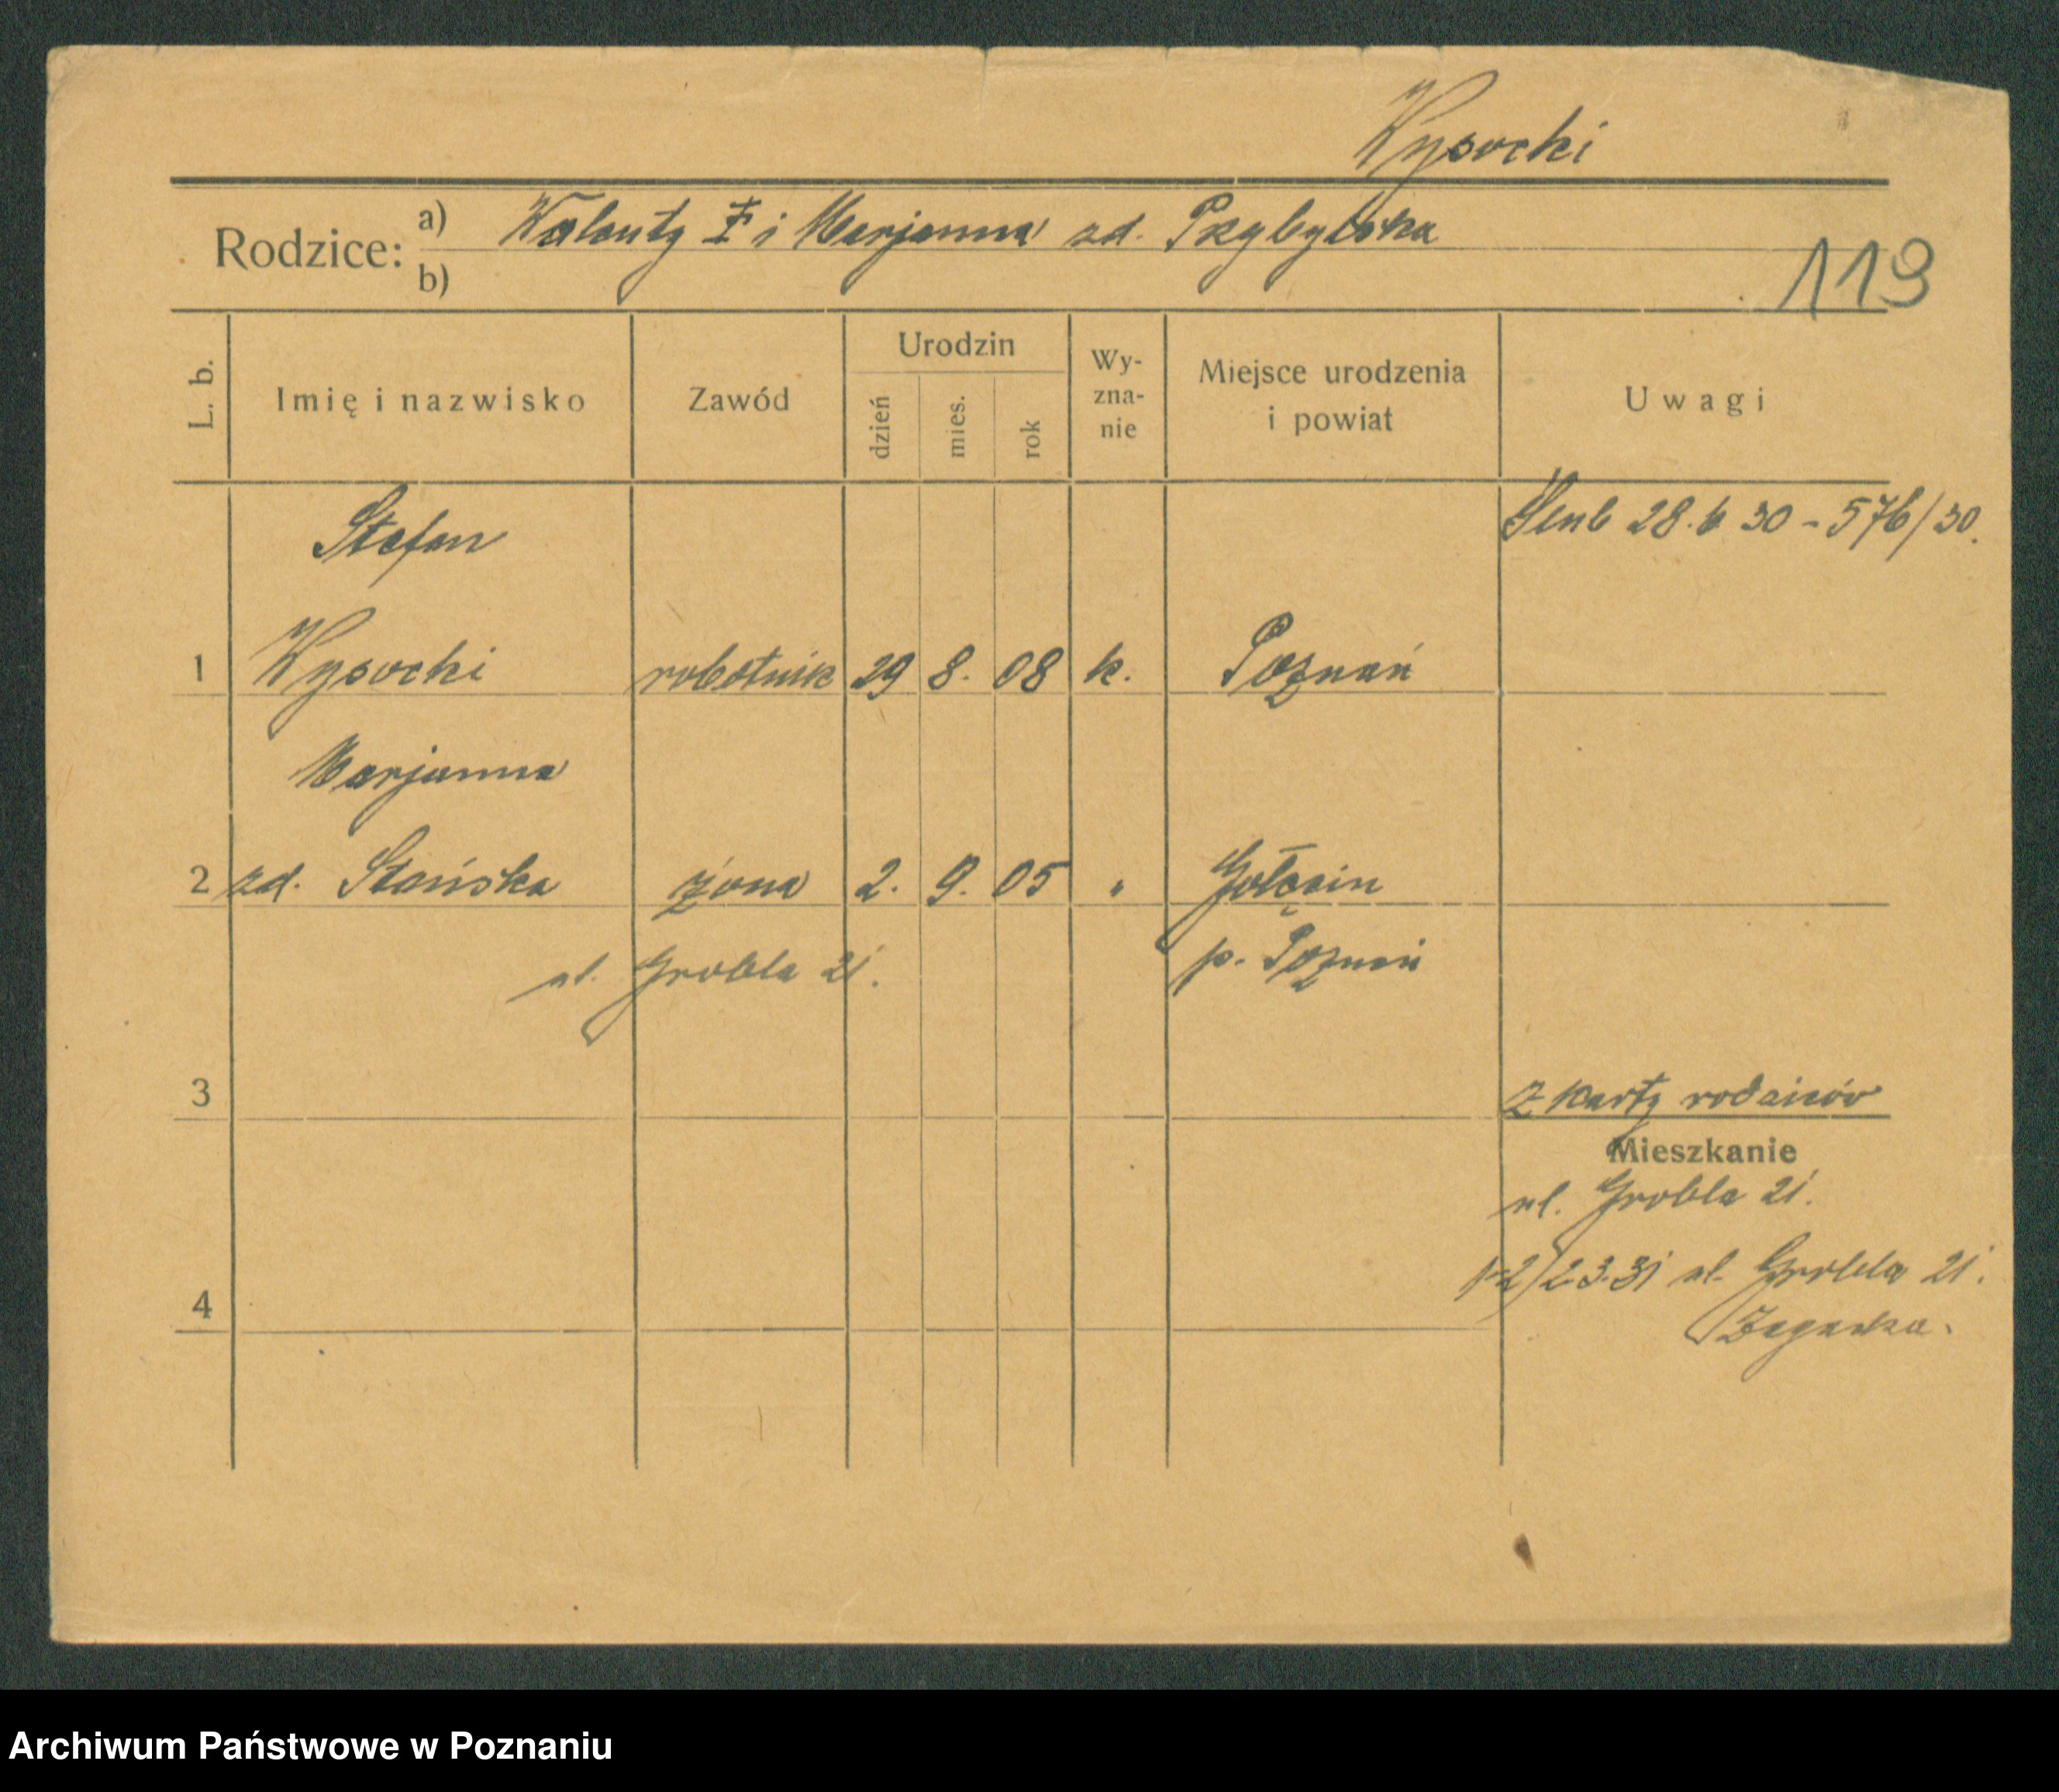 Wysocki
Rodzice: a) Walenty ‡ i Marjanna zd. Przybylska
b)
119
L. b. Imię i nazwisko Zawód Urodzin dzień mies. rok Wy-zna-nie Miejsce urodzenia i powiat Uwagi
Stefan Ślub 28.6 30 - 576/30.
1 Wysocki robotnik 29 8. 08 k. Poznań
Marjanna
2 zd. Stańska żona 2. 9. 05 " Gołęcin
ul. Grobla 21. p. Poznań
3 z karty rodziców
Mieszkanie
ul. Grobla 21.
1-2/23.31 ul. Grobla 21.
4
Archiwum Państwowe w Poznaniu